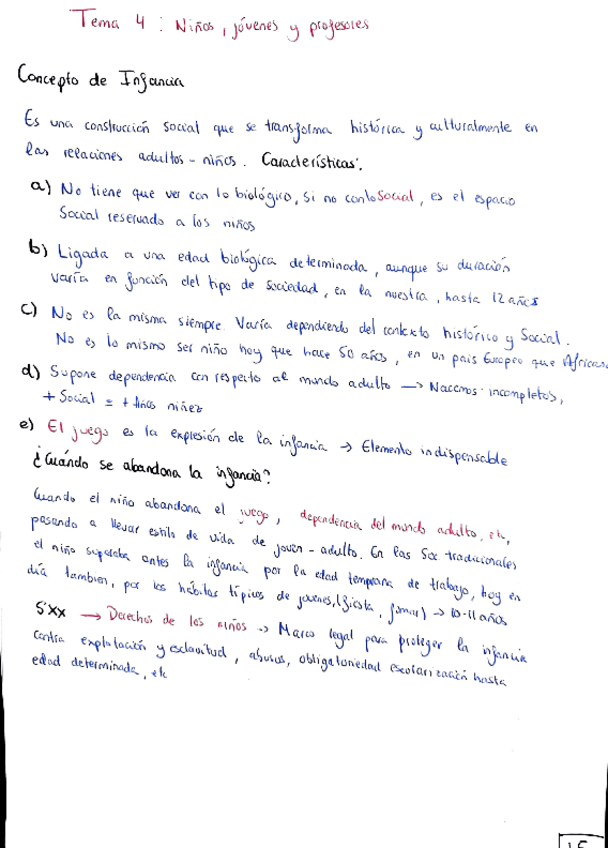 Tema 4 : Niños, jóvenes y profesores
Concepto de Infancia
Es una construcción social que se transforma histórica y culturalmente en
las relaciones adultos - niños. Características:
a) No tiene que ver con lo biológico, si no con lo social, es el espacio
Social reservado a los niños
b) Ligada a una edad biológica determinada, aunque su duración
varía en función del tipo de sociedad, en la nuestra, hasta 12 años
c) No es la misma siempre. Varía dependiendo del contexto histórico y Social.
No es lo mismo ser niño hoy que hace 50 años, en un país Europeo que Africano
d) Supone dependencia con respecto al mundo adulto → Nacemos incompletos,
+ Social = + Años niñez
e) El juego es la expresión de la infancia → Elemento indispensable
¿Cuándo se abandona la infancia?
Cuando el niño abandona el juego, dependencia del mundo adulto, etc,
pasando a llevar estilo de vida de joven - adulto. En las Soc tradicionales
el niño superaba antes la infancia por la edad temprana de trabajo, hoy en
día tambien, por los hábitos típicos de jovenes, (fiesta, fumar) → 10-11 años
S'XX → Derechos de los niños → Marco legal para proteger la infancia
contra explotación y esclavitud, abusos, obligatoriedad escolarización hasta
edad determinada, etc